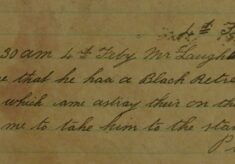 4th F
30 am 4th Feby Mr Laugh
e that he had a Black Retre
which came astray their on th
me to take him to the sta
P